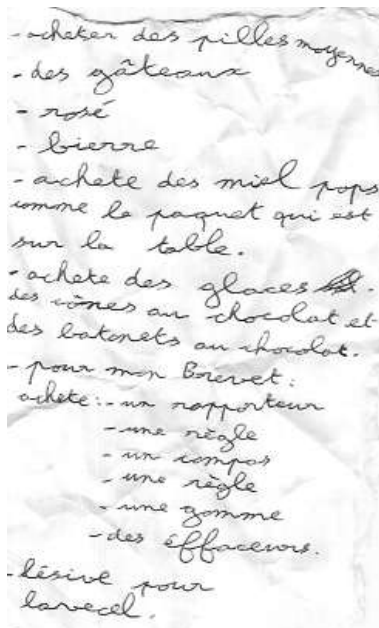 - acheter des pilles moyennes
- des gâteaux
- rosé
- bierre
- achete des miel pops
comme le paquet qui est
sur la table.
- achete des glaces.
des cônes au chocolat et
des batonets au chocolat.
- pour mon Brevet:
achete: - un rapporteur
- une règle
- un compas
- une règle
- une gomme
- des éffaceurs.
- lésive pour
lavecel.